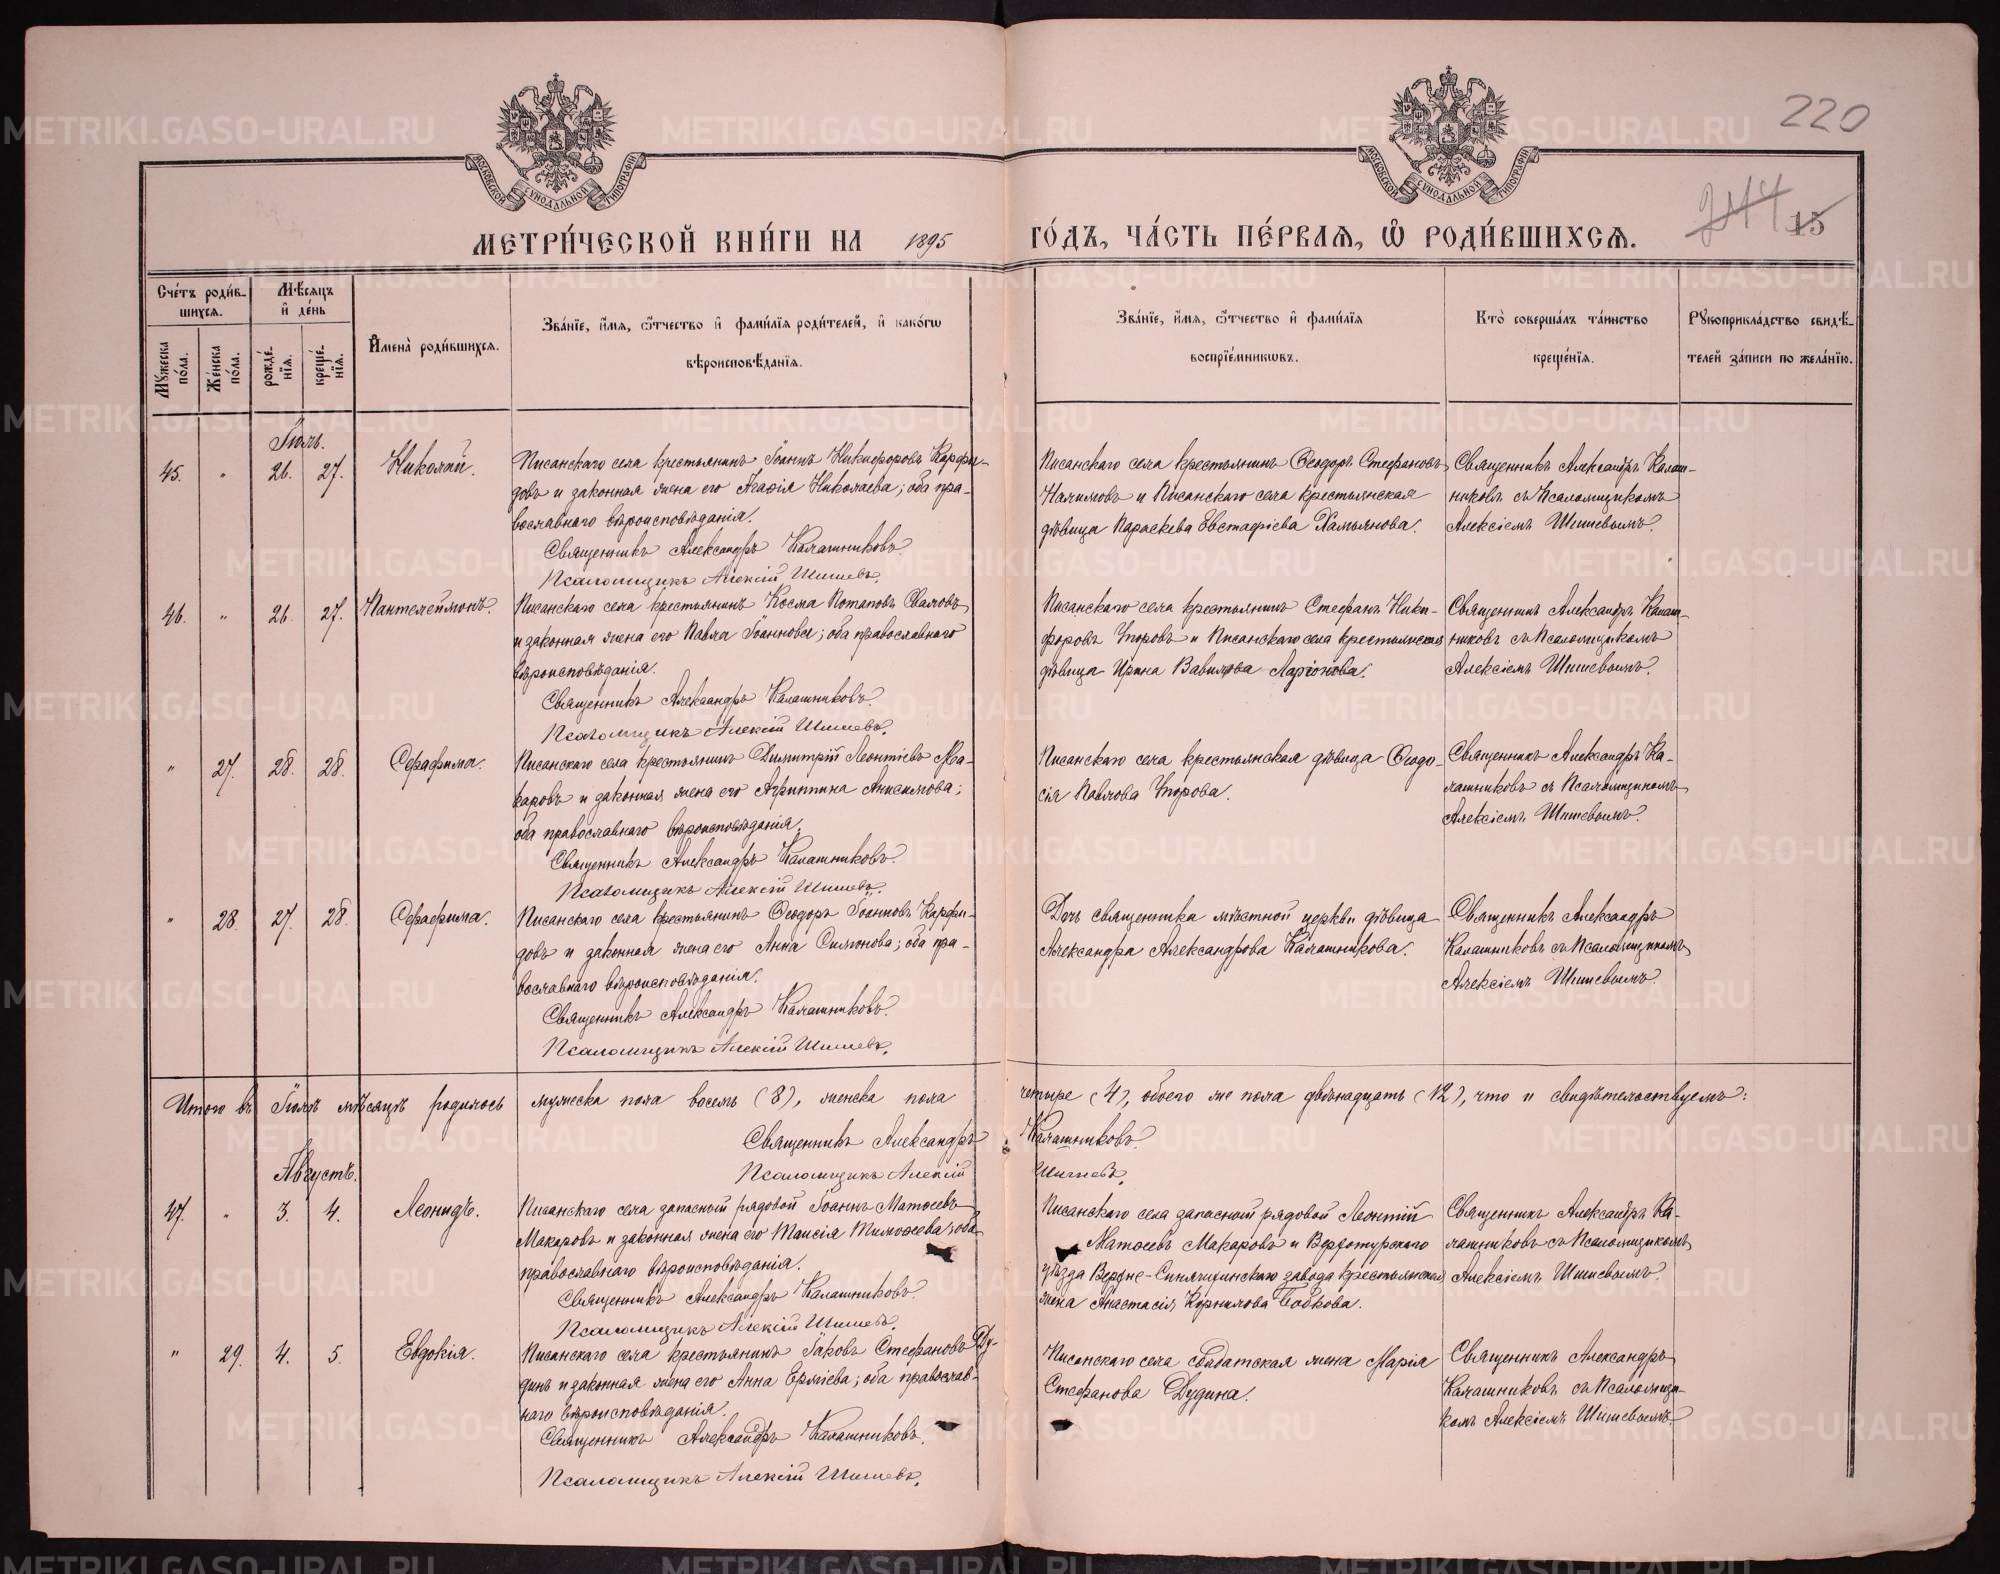 220
244 15
МОСКОВСКОЙ СУНОДАЛЬНОЙ ТИПОГРАФІИ
МОСКОВСКОЙ СУНОДАЛЬНОЙ ТИПОГРАФІИ
МЕТРИ́ЧЕСКОЙ КНИ́ГИ НА 1895 ГО́ДЪ, ЧА́СТЬ ПЕ́РВАЯ, Ѡ РОДИ́ВШИХСЯ.
Сче́тъ роди́в-
шихся.
Мꙋ́жеска по́ла.
Же́нска по́ла.
Мѣ́сяцъ и҆ де́нь
рожде́нїя.
креще́нїя.
И҆мена̀ роди́вшихся.
Зва́нїе, и҆́мя, ѻ҆́тчество и҆ фами́лїя роди́телей, и҆ како́гѡ
вѣроисповѣ́данїя.
Зва́нїе, и҆́мя, ѻ҆́тчество и҆ фами́лїя
воспрїе́мникѡвъ.
Кто̀ соверша́лъ та́инство
креще́нїя.
Рꙋкоприкла́дство свидѣ́-
телей за́писи по жела́нїю.
Іюль.
45. " 26. 27. Николай.
Писанскаго села крестьянинъ Іоаннъ Никифоровъ Карфи-
довъ и законная жена его Агафія Николаева; оба пра-
вославнаго вѣроисповѣданія.
Священникъ Александръ Калашниковъ.
Псаломщикъ Алексій Шишевъ.
Писанскаго села крестьянинъ Ѳеодоръ Стефановъ
Налимовъ и Писанскаго села крестьянская
дѣвица Параскева Евстафіева Хамьянова.
Священникъ Александръ Калаш-
никовъ съ Псаломщикомъ
Алексіемъ Шишевымъ.
46. " 26. 27. Пантелеймонъ.
Писанскаго села крестьянинъ Косма Потаповъ Сваловъ
и законная жена его Павла Іоаннова; оба православнаго
вѣроисповѣданія.
Священникъ Александръ Калашниковъ.
Псаломщикъ Алексій Шишевъ.
Писанскаго села крестьянинъ Стефанъ Ники-
форовъ Упоровъ и Писанскаго села крестьянская
дѣвица Ирина Вавилова Ларіонова.
Священникъ Александръ Калаш-
никовъ съ Псаломщикомъ
Алексіемъ Шишевымъ.
" 27. 28. 28. Серафима.
Писанскаго села крестьянинъ Димитрій Леонтіевъ Ма-
каровъ и законная жена его Агриппина Анисимова;
оба православнаго вѣроисповѣданія.
Священникъ Александръ Калашниковъ.
Псаломщикъ Алексій Шишевъ.
Писанскаго села крестьянская дѣвица Ѳеодо-
сія Павлова Упорова.
Священникъ Александръ Ка-
лашниковъ съ Псаломщикомъ
Алексіемъ Шишевымъ.
" 28. 27. 28. Серафима.
Писанскаго села крестьянинъ Ѳеодоръ Іоанновъ Карфи-
довъ и законная жена его Анна Симонова; оба пра-
вославнаго вѣроисповѣданія.
Священникъ Александръ Калашниковъ.
Псаломщикъ Алексій Шишевъ.
Дочь священника мѣстной церкви дѣвица
Александра Александрова Калашникова.
Священникъ Александръ
Калашниковъ съ Псаломщикомъ
Алексіемъ Шишевымъ.
Итого въ Іюлѣ мѣсяцѣ родилось мужеска пола восемь (8), женска пола четыре (4), обоего же пола двѣнадцать (12), что и свидѣтельствуемъ:
Священникъ Александръ Калашниковъ.
Псаломщикъ Алексій Шишевъ.
Августъ.
47. " 3. 4. Леонидъ.
Писанскаго села запасный рядовой Іоаннъ Матѳеевъ
Макаровъ и законная жена его Таисія Тимоѳеева; оба
православнаго вѣроисповѣданія.
Священникъ Александръ Калашниковъ.
Псаломщикъ Алексій Шишевъ.
Писанскаго села запасной рядовой Леонтій
Матѳеевъ Макаровъ и Верхотурскаго
уѣзда Верхне-Синячихинскаго завода крестьянская
жена Анастасія Корнилова Бобкова.
Священникъ Александръ Ка-
лашниковъ съ Псаломщикомъ
Алексіемъ Шишевымъ.
" 29. 4. 5. Евдокія.
Писанскаго села крестьянинъ Іаковъ Стефановъ Ду-
динъ и законная жена его Анна Ермiева; оба православ-
наго вѣроисповѣданія.
Священникъ Александръ Калашниковъ.
Псаломщикъ Алексій Шишевъ.
Писанскаго села солдатская жена Марія
Стефанова Дудина.
Священникъ Александръ
Калашниковъ съ Псаломщи-
комъ Алексіемъ Шишевымъ.
METRIKI.GASO-URAL.RU